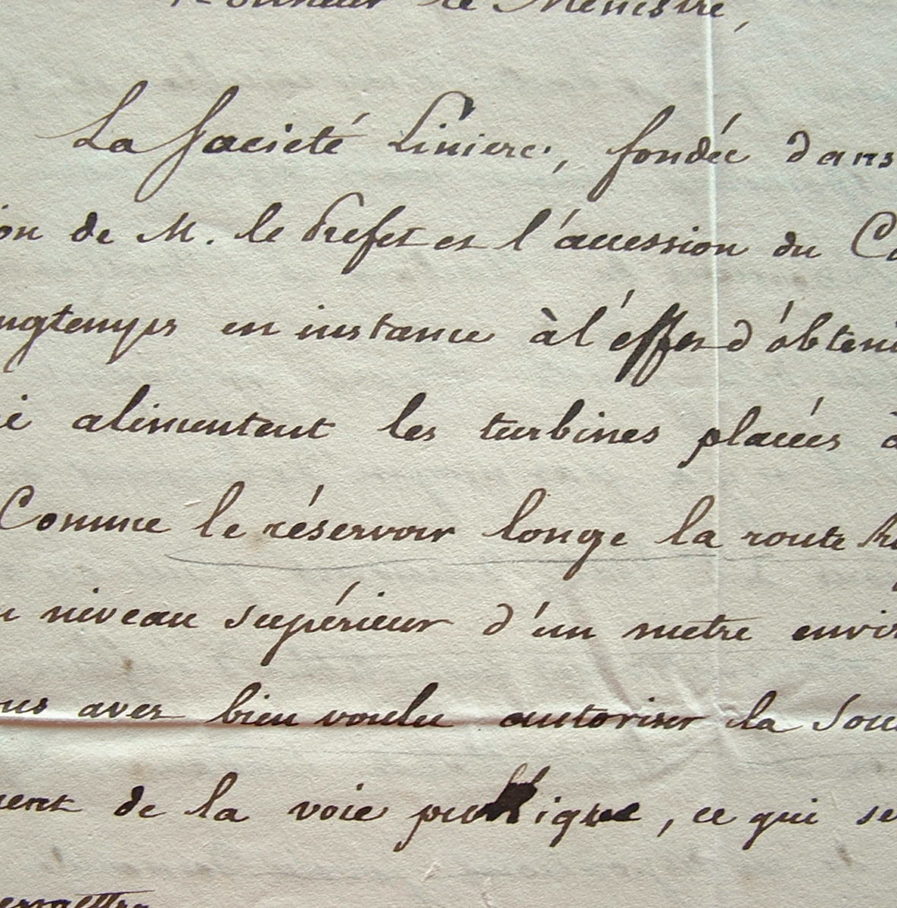 le Ministre,
La Société Linière, fondée dans
de M. le Préfet et l'accession du
en instance à l'effet d'obteni
alimentent les turbines placées à
Comme le réservoir longe la route
niveau supérieur d'un mètre envir
avez bien voulu autoriser la
de la voie publique, ce qui se